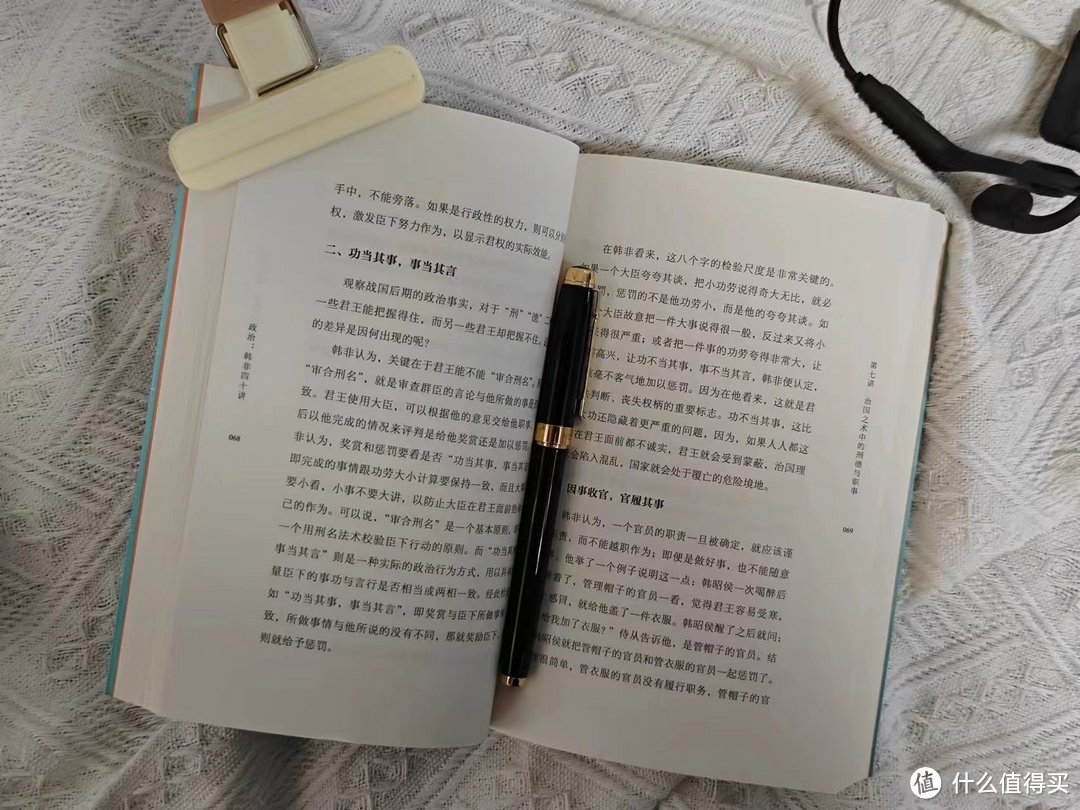 手中，不能旁落。如果是行政性的权力，则可以分
权，激发臣下努力作为，以显示君权的实际效能。
二、功当其事，事当其言
观察战国后期的政治事实，对于“刑”“德”二
一些君王能把握得住，而另一些君王却把握不住，这
的差异是因何出现的呢？
韩非认为，关键在于君王能不能“审合刑名”。
“审合刑名”，就是审查群臣的言论与他所做的事是
致。君王使用大臣，可以根据他的意见交给他职事，
后以他完成的情况来评判是给他奖赏还是加以惩罚。
非认为，奖赏和惩罚要看是否“功当其事，事当其
即完成的事情跟功劳大小计算要保持一致，而且大
要小看，小事不要大讲，以防止大臣在君王面前
己的作为。可以说，“审合刑名”是一个基本原则，
一个用刑名法术校验臣下行动的原则。而“功当其
事当其言”则是一种实际的政治行为方式，用以具
量臣下的事功与言行是否相当或两相一致。经此
如“功当其事，事当其言”，即奖赏与臣下所做事
致，所做事情与他所说的没有不同，那就奖励臣下，
则就给予惩罚。
政治：韩非四十讲
068
在韩非看来，这八个字的检验尺度是非常关键的。
如果一个大臣夸夸其谈，把小功劳说得奇大无比，就必
罚，惩罚的不是他功劳小，而是他的夸夸其谈。如
个大臣故意把一件大事说得很一般，反过来又将小
得很严重；或者把一件事的功劳夸得非常大，让
高兴，让功不当其事，事不当其言，韩非便认定，
毫不客气地加以惩罚。因为在他看来，这就是君
判断、丧失权柄的重要标志。功不当其事，这比
功还隐藏着更严重的问题，因为，如果人人都这
在君王面前都不诚实，君王就会受到蒙蔽，治国理
会陷入混乱，国家就会处于覆亡的危险境地。
因事收官，官履其事
韩非认为，一个官员的职责一旦被确定，就应该谨
责，而不能越职作为；即便是做好事，也不能随意
。他举了一个例子说明这一点：韩昭侯一次喝醉后
着了，管理帽子的官员一看，觉得君王容易受寒，
感冒，就给他盖了一件衣服。韩昭侯醒了之后就问：
给我加了衣服？”侍从告诉他，是管帽子的官员。结
昭侯就把管帽子的官员和管衣服的官员一起惩罚了。
很简单，管衣服的官员没有履行职务，管帽子的官
第七讲 治国之术中的刑德与职事
069
值 什么值得买